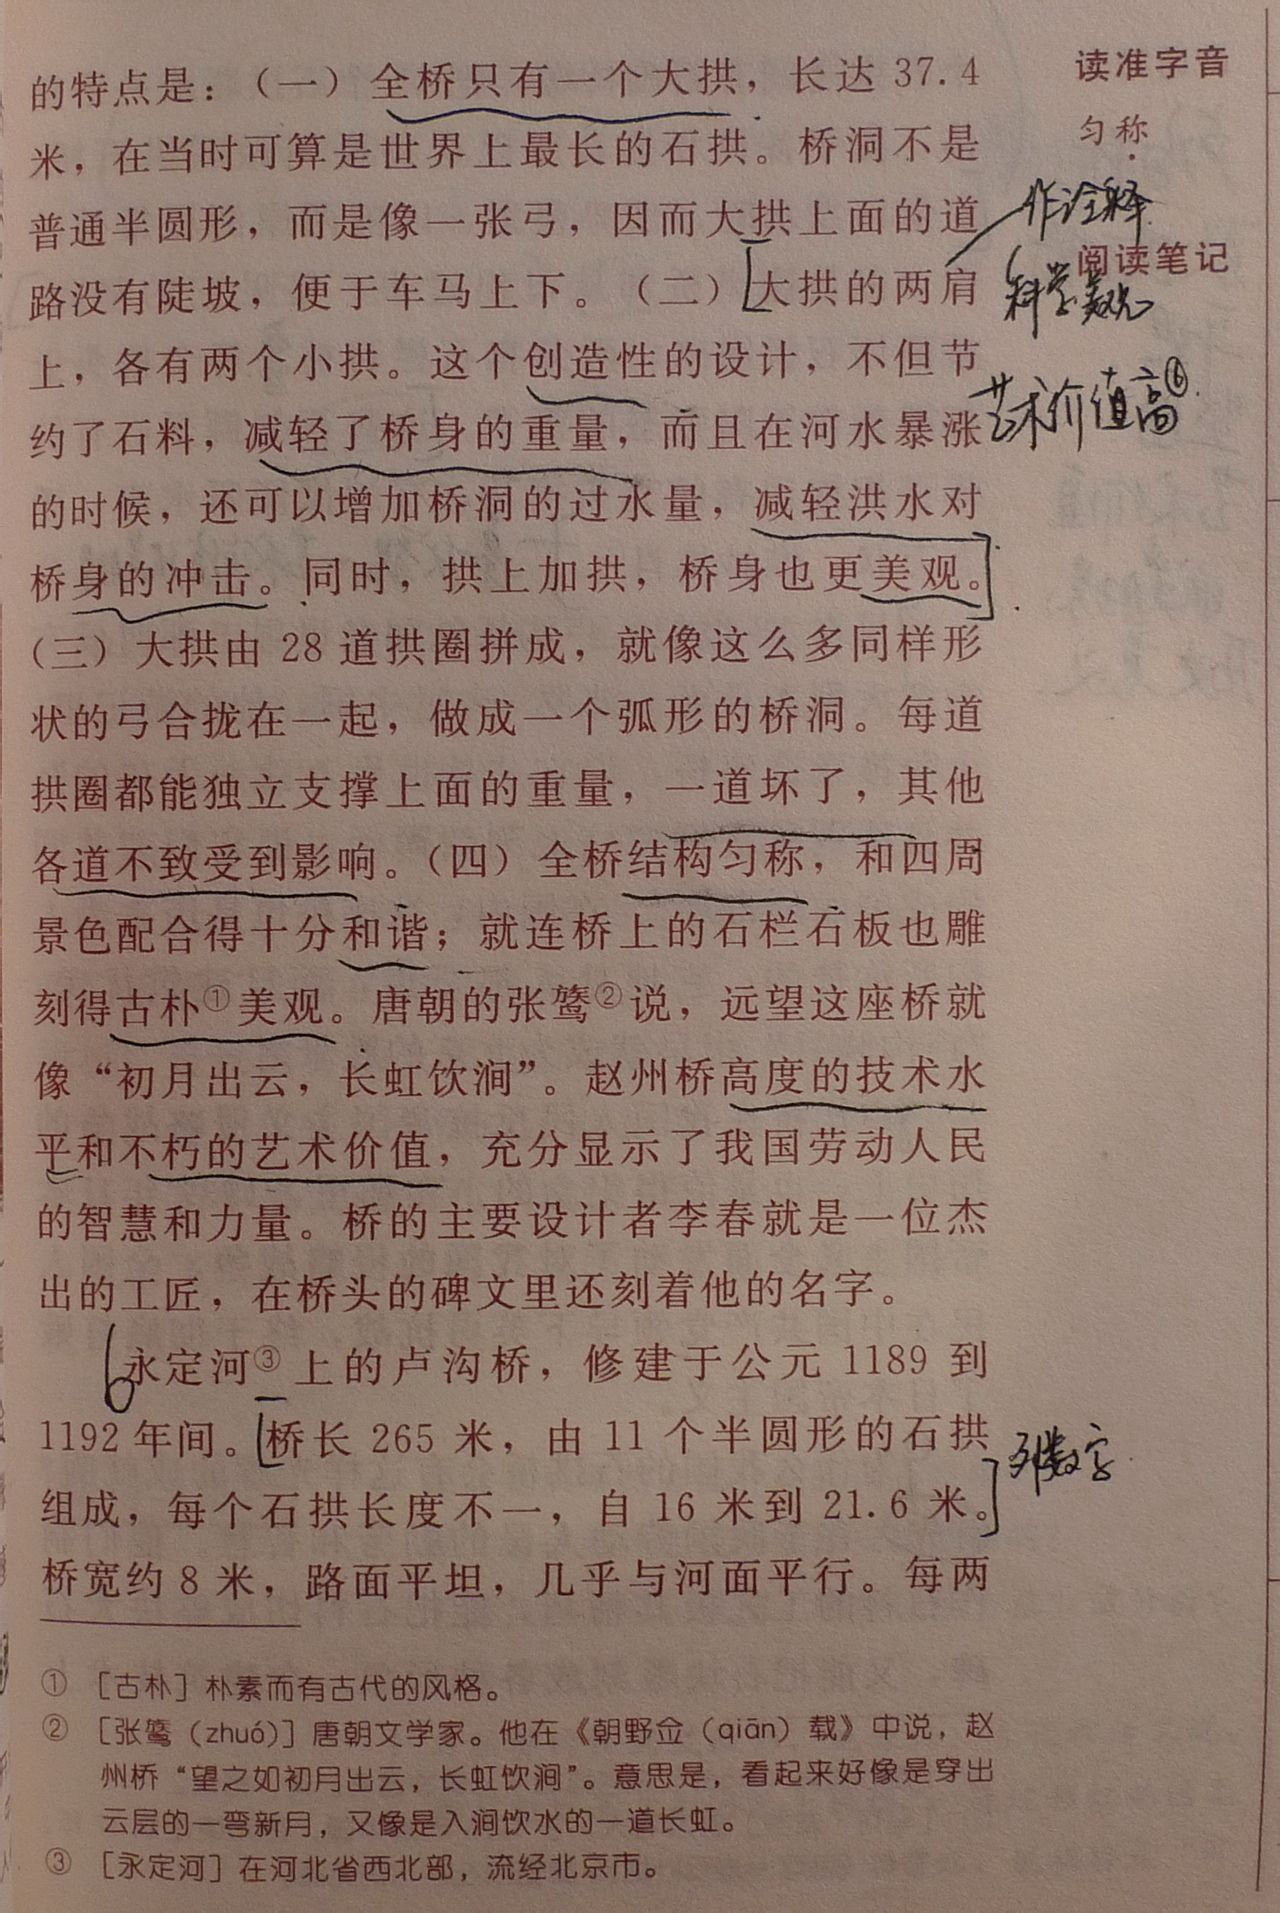 的特点是：（一）全桥只有一个大拱，长达 37.4
米，在当时可算是世界上最长的石拱。桥洞不是
普通半圆形，而是像一张弓，因而大拱上面的道
路没有陡坡，便于车马上下。（二）大拱的两肩
上，各有两个小拱。这个创造性的设计，不但节
约了石料，减轻了桥身的重量，而且在河水暴涨
的时候，还可以增加桥洞的过水量，减轻洪水对
桥身的冲击。同时，拱上加拱，桥身也更美观。
（三）大拱由 28 道拱圈拼成，就像这么多同样形
状的弓合拢在一起，做成一个弧形的桥洞。每道
拱圈都能独立支撑上面的重量，一道坏了，其他
各道不致受到影响。（四）全桥结构匀称，和四周
景色配合得十分和谐；就连桥上的石栏石板也雕
刻得古朴①美观。唐朝的张鷟②说，远望这座桥就
像“初月出云，长虹饮涧”。赵州桥高度的技术水
平和不朽的艺术价值，充分显示了我国劳动人民
的智慧和力量。桥的主要设计者李春就是一位杰
出的工匠，在桥头的碑文里还刻着他的名字。
永定河③上的卢沟桥，修建于公元 1189 到
1192 年间。桥长 265 米，由 11 个半圆形的石拱
组成，每个石拱长度不一，自 16 米到 21.6 米。
桥宽约 8 米，路面平坦，几乎与河面平行。每两
① ［古朴］朴素而有古代的风格。
② ［张鷟（zhuó）］唐朝文学家。他在《朝野佥（qiān）载》中说，赵
州桥“望之如初月出云，长虹饮涧”。意思是，看起来好像是穿出
云层的一弯新月，又像是入涧饮水的一道长虹。
③ ［永定河］在河北省西北部，流经北京市。
读准字音
匀称
作诠释
阅读笔记
科学美观
艺术价值高⑥
列数字